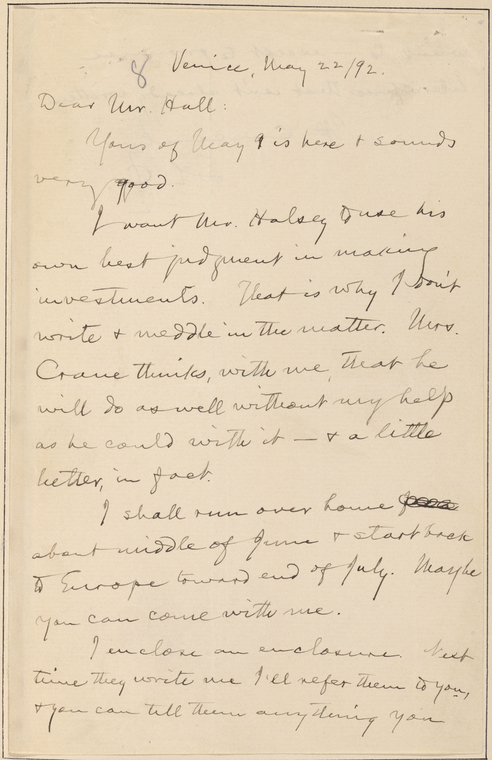 8 Venice, May 22/92.
Dear Mr. Hall:
Yours of May 9 is here & sounds
very good.
I want Mr. Halsey to use his
own best judgment in making
investments. That is why I don't
write & meddle in the matter. Mrs.
Crane thinks, with me, that he
will do as well without my help
as he could with it — & a little
better, in fact.
I shall run over home
about middle of June & start back
to Europe toward end of July. Maybe
you can come with me.
I enclose an enclosure. Next
time they write me I'll refer them to you,
& you can tell them anything you